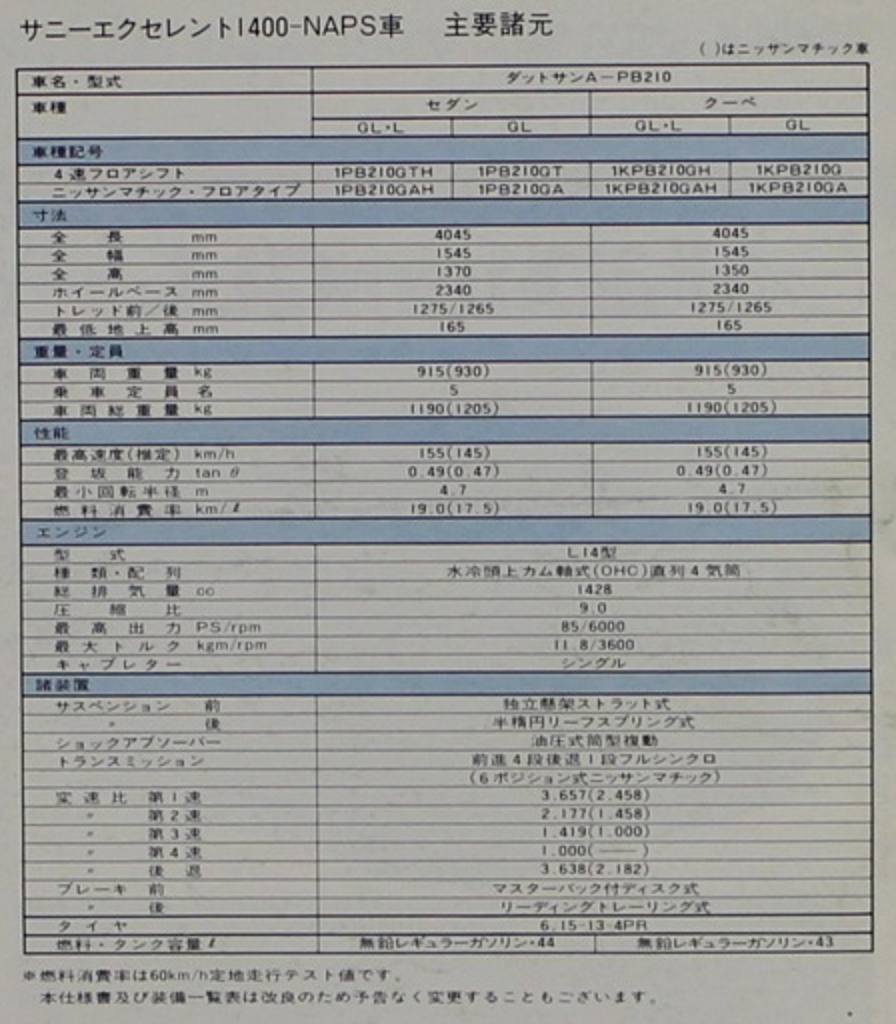 サニーエクセレント1400-NAPS車 主要諸元
( )はニッサンマチック車
車名・型式 ダットサンA-PB210
車種 セダン クーペ
GL・L GL GL・L GL
車種記号
4速フロアシフト 1PB210GTH 1PB210GT 1KPB210GH 1KPB210G
ニッサンマチック・フロアタイプ 1PB210GAH 1PB210GA 1KPB210GAH 1KPB210GA
寸法
全長 mm 4045 4045
全幅 mm 1545 1545
全高 mm 1370 1350
ホイールベース mm 2340 2340
トレッド前/後 mm 1275/1265 1275/1265
最低地上高 mm 165 165
重量・定員
車両重量 kg 915(930) 915(930)
乗車定員 名 5 5
車両総重量 kg 1190(1205) 1190(1205)
性能
最高速度(推定) km/h 155(145) 155(145)
登坂能力 tanθ 0.49(0.47) 0.49(0.47)
最小回転半径 m 4.7 4.7
燃料消費率 km/ℓ 19.0(17.5) 19.0(17.5)
エンジン
型式 L14型
種類・配列 水冷頭上カム軸式(OHC)直列4気筒
総排気量 cc 1428
圧縮比 9.0
最高出力 PS/rpm 85/6000
最大トルク kgm/rpm 11.8/3600
キャブレター シングル
諸装置
サスペンション 前 独立懸架ストラット式
〃 後 半楕円リーフスプリング式
ショックアブソーバー 油圧式筒型複動
トランスミッション 前進4段後退1段フルシンクロ
(6ポジション式ニッサンマチック)
変速比 第1速 3.657(2.458)
〃 第2速 2.177(1.458)
〃 第3速 1.419(1.000)
〃 第4速 1.000( ― )
〃 後退 3.638(2.182)
ブレーキ 前 マスターバック付ディスク式
〃 後 リーディングトレーリング式
タイヤ 6.15-13-4PR
燃料・タンク容量ℓ 無鉛レギュラーガソリン・44 無鉛レギュラーガソリン・43
※燃料消費率は60km/h定地走行テスト値です。
本仕様書及び装備一覧表は改良のため予告なく変更することもございます。